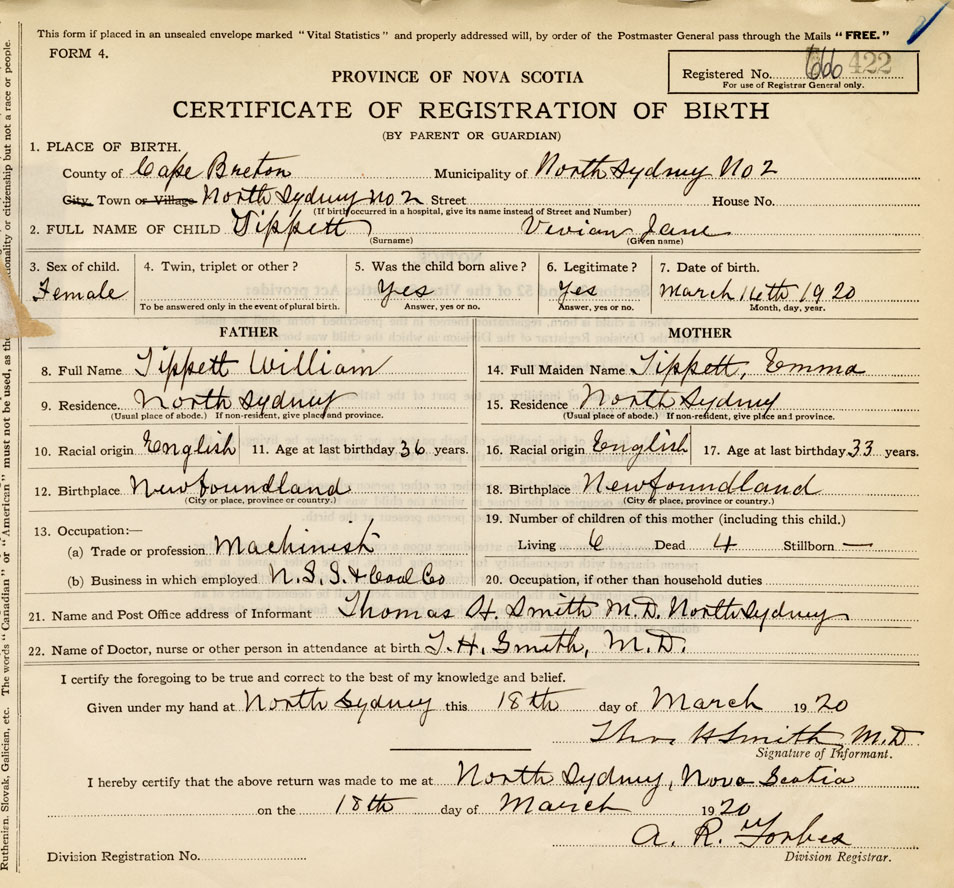 This form if placed in an unsealed envelope marked "Vital Statistics" and properly addressed will, by order of the Postmaster General pass through the Mails "FREE."
FORM 4.
Registered No. 666 422
For use of Registrar General only.
PROVINCE OF NOVA SCOTIA
CERTIFICATE OF REGISTRATION OF BIRTH
(BY PARENT OR GUARDIAN)
1. PLACE OF BIRTH.
County of Cape Breton Municipality of North Sydney No 2
City, Town or Village North Sydney No 2 Street House No.
(If birth occurred in a hospital, give its name instead of Street and Number)
2. FULL NAME OF CHILD Tippett Vivian Jane
(Surname) (Given name)
3. Sex of child. 4. Twin, triplet or other? 5. Was the child born alive? 6. Legitimate? 7. Date of birth.
Female Yes Yes March 16th 1920
To be answered only in the event of plural birth. Answer, yes or no. Answer, yes or no. Month, day, year.
FATHER MOTHER
8. Full Name Tippett William 14. Full Maiden Name Tippett, Emma
9. Residence North Sydney 15. Residence North Sydney
(Usual place of abode.) If non-resident, give place and province. (Usual place of abode.) If non-resident, give place and province.
10. Racial origin English 11. Age at last birthday 36 years. 16. Racial origin English 17. Age at last birthday 33 years.
12. Birthplace Newfoundland 18. Birthplace Newfoundland
(City or place, province or country.) (City or place, province or country.)
13. Occupation:— 19. Number of children of this mother (including this child.)
(a) Trade or profession Machinist Living 6 Dead 4 Stillborn —
(b) Business in which employed N.S.S. & Coal Co 20. Occupation, if other than household duties
21. Name and Post Office address of Informant Thomas H. Smith M.D. North Sydney
22. Name of Doctor, nurse or other person in attendance at birth T. H. Smith, M.D.
I certify the foregoing to be true and correct to the best of my knowledge and belief.
Given under my hand at North Sydney this 18th day of March 1920
Thos H Smith M.D
Signature of Informant.
I hereby certify that the above return was made to me at North Sydney, Nova Scotia
on the 18th day of March 1920
A. R. Forbes
Division Registrar.
Division Registration No.
Ruthenian, Slovak, Galician, etc. The words "Canadian" or "American" must not be used, as they nationality or citizenship but not a race or people.